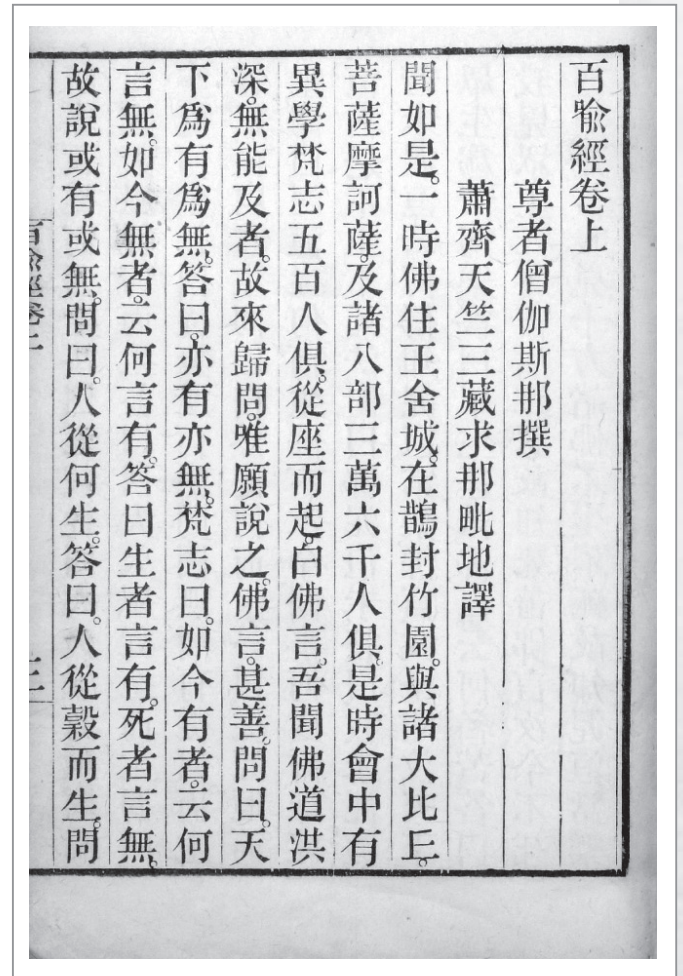 百喻經卷上
尊者僧伽斯那撰
蕭齊天竺三藏求那毗地譯
聞如是。一時佛住王舍城。在鵲封竹園。與諸大比丘。
菩薩摩訶薩。及諸八部三萬六千人俱。是時會中有
異學梵志五百人俱。從座而起。白佛言。吾聞佛道洪
深。無能及者。故來歸問。唯願說之。佛言。甚善。問曰。天
下爲有爲無。答曰。亦有亦無。梵志曰。如今有者。云何
言無。如今無者。云何言有。答曰生者言有。死者言無。
故說或有或無。問曰。人從何生。答曰。人從榖而生。問
百喻經卷上